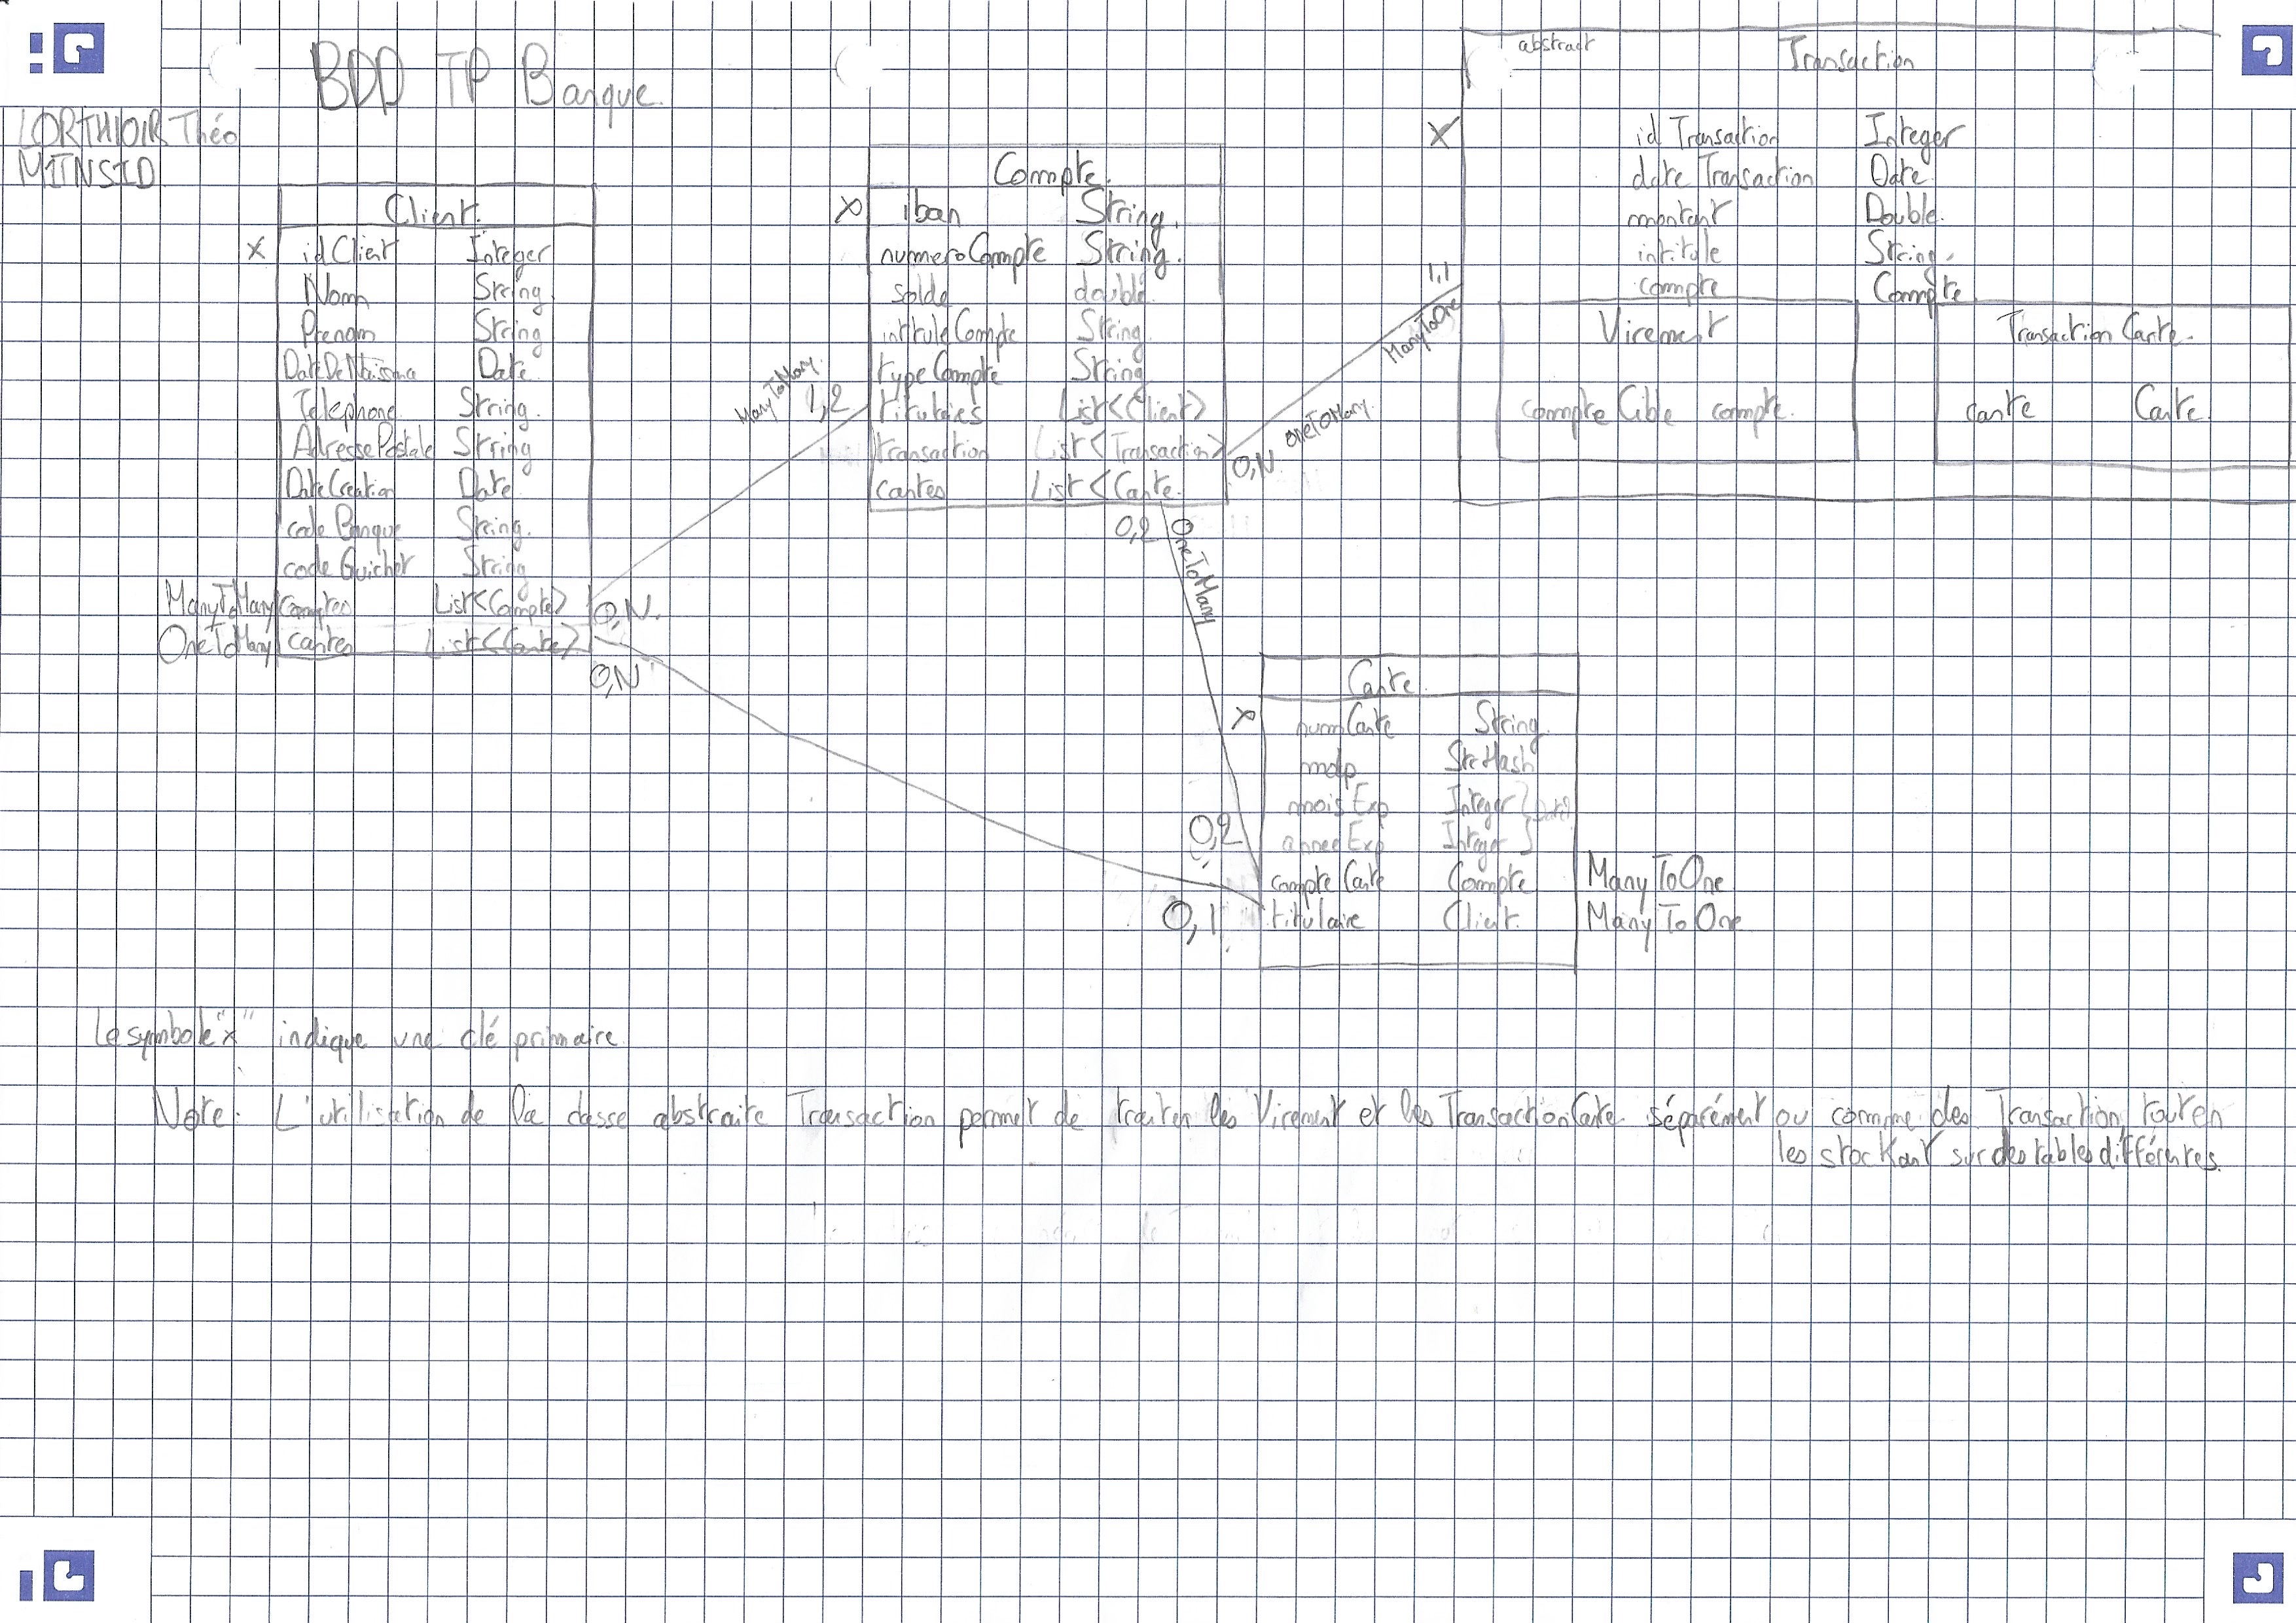 BDD TP Banque
LORTHIOIR Théo
M1INSID
Client
x idClient Integer
Nom String
Prenom String
Date
Telephone String
AdressePostale String
DateCreation Date
codeBanque String
codeGuichet String
ManyToMany comptes List<Compte> 0,N
OneToMany cartes List<Carte>
0,N
ManyToMany
1,2
Compte
x iban String
numeroCompte String
solde double
intituleCompte String
typeCompte String
titulaires List<Client>
transaction List<Transaction>
cartes List<Carte
0,N
OneToMany
ManyToOne
1,1
0,2
OneToMany
abstract Transaction
x idTransaction Integer
dateTransaction Date
montant Double
intitule String
compte Compte
Virement
compteCible compte
Transaction Carte
carte Carte
Carte
x numCarte String
mdp StrHash
moisExp Integer } Date?
anneeExp Integer }
0,2
compteCarte Compte ManyToOne
0,1 titulaire Client ManyToOne
Le symbole "x" indique une clé primaire
Note: L'utilisation de la classe abstraite Transaction permet de traiter les Virement et les TransactionCarte séparément ou comme des Transaction, tout en
les stockant sur des tables différentes.